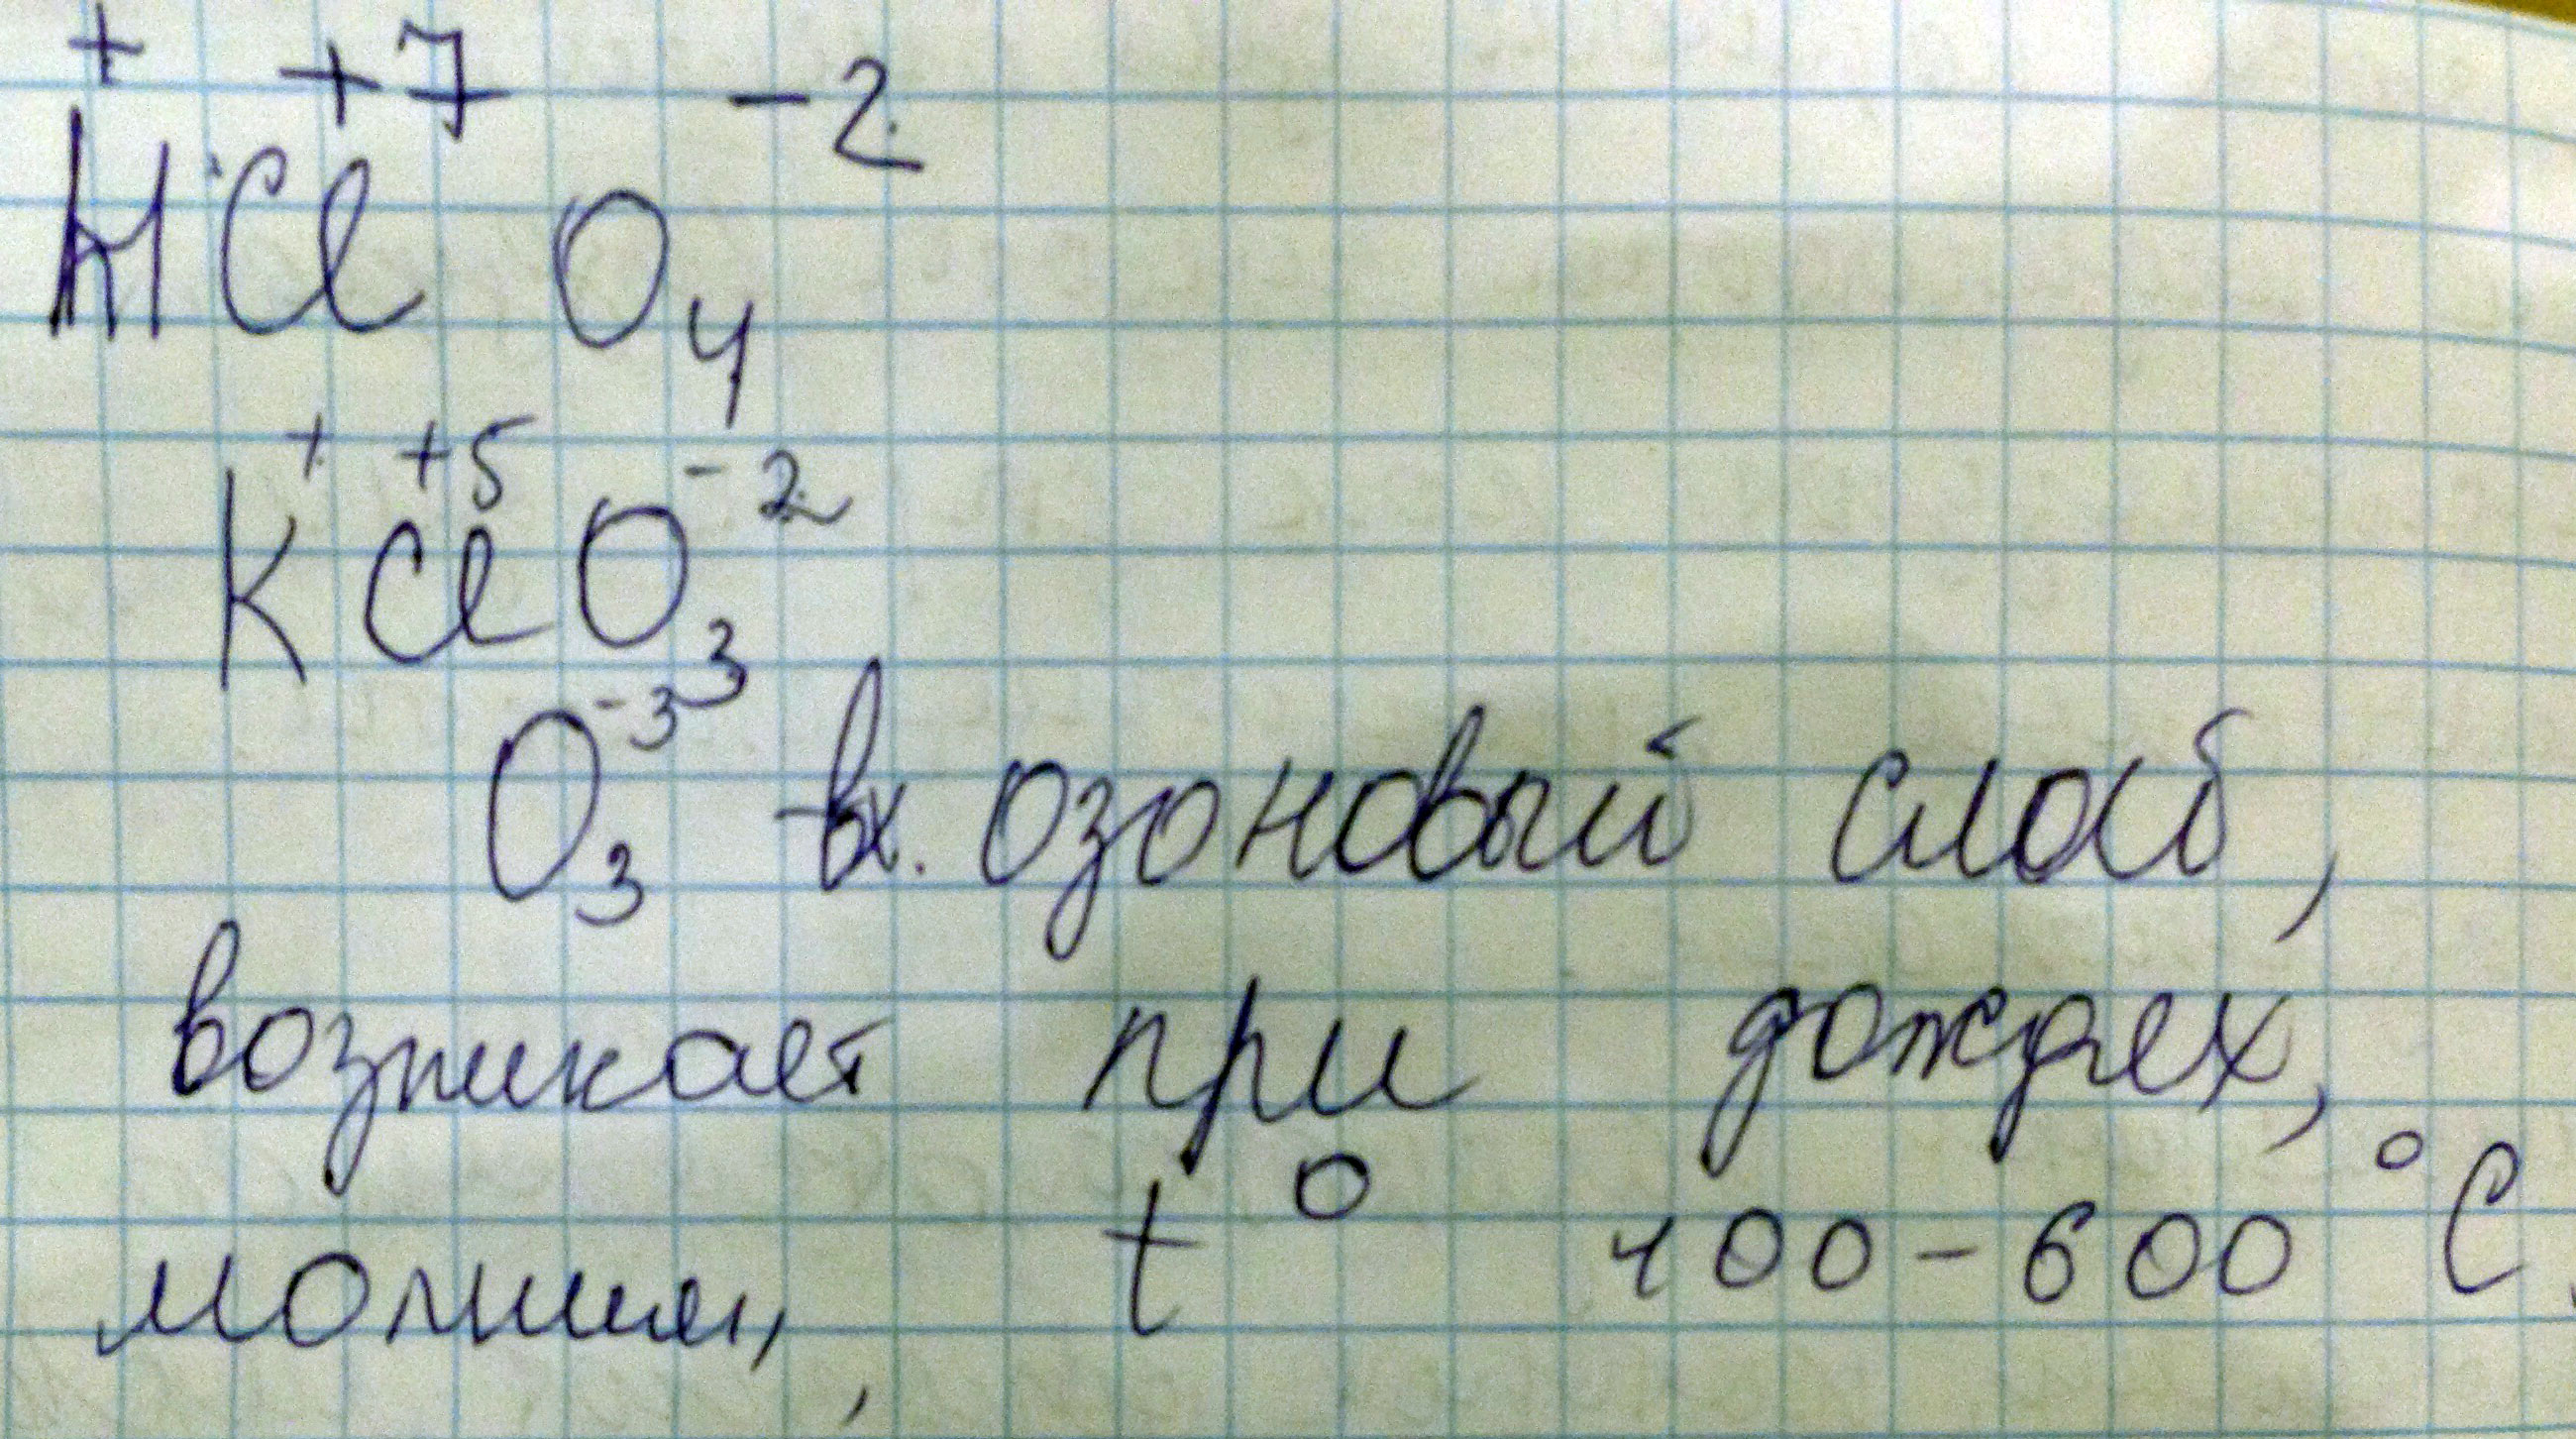 + +7 -2
HClO4
+ +5 -2
KClO3
-3
O3 - вх. озоновый слой,
возникает при дождях,
молнии, t° 400-600 °C.